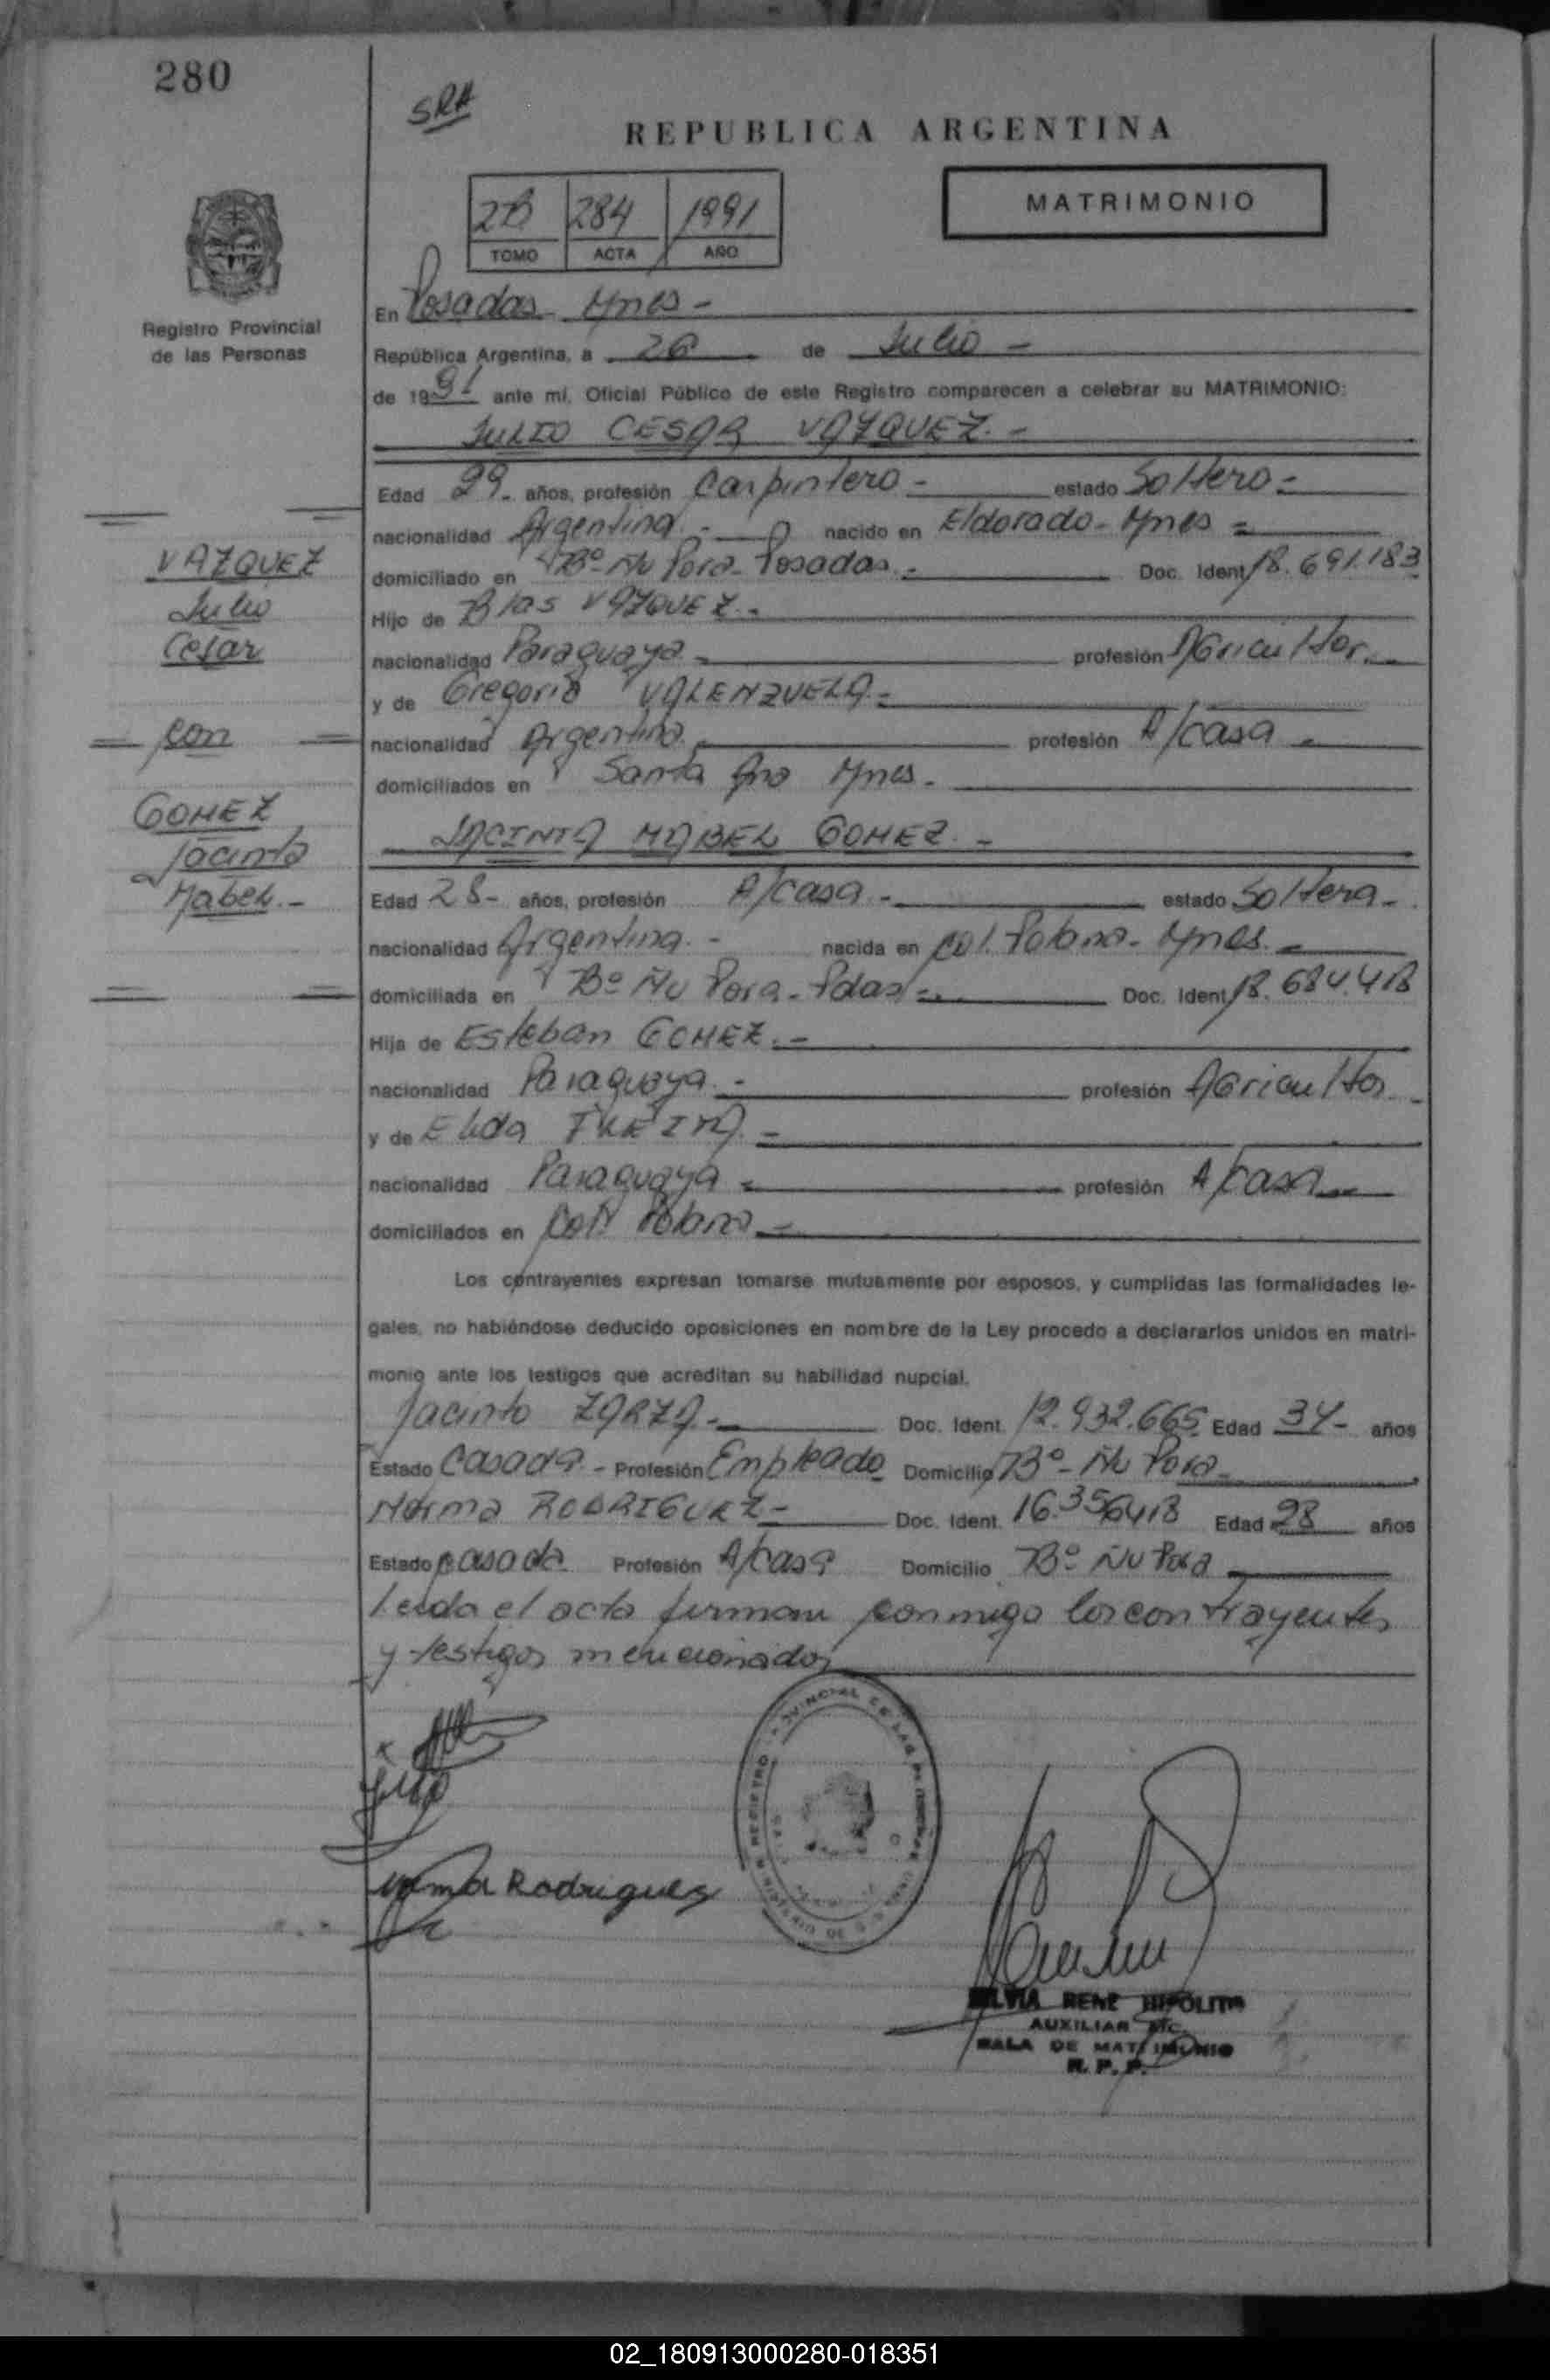 280
SRA
REPUBLICA ARGENTINA
2B 284 1991
TOMO ACTA AÑO
MATRIMONIO
Registro Provincial
de las Personas
En Posadas Mnes -
República Argentina, a 26 de Julio -
de 1991 - ante mí, Oficial Público de este Registro comparecen a celebrar su MATRIMONIO:
JULIO CESAR VAZQUEZ. -
Edad 29 - años, profesión Carpintero - estado Soltero -
nacionalidad Argentina - nacido en Eldorado - Mnes =
domiciliado en Bº Ñu Pora - Posadas - Doc. Ident. 18.691.183
Hijo de Blas VAZQUEZ. -
nacionalidad Paraguaya - profesión Agricultor -
y de Gregoria VALENZUELA -
nacionalidad Argentina - profesión A/casa -
domiciliados en Santa Ana Mnes -
JACINTA MABEL GOMEZ. -
Edad 28 - años, profesión A/casa - estado Soltera -
nacionalidad Argentina - nacida en Col. Polana - Mnes -
domiciliada en Bº Ñu Pora - Pdas - Doc. Ident. 18.684.418
Hija de Esteban GOMEZ. -
nacionalidad Paraguaya - profesión Agricultor -
y de Elida -
nacionalidad Paraguaya - profesión A/casa -
domiciliados en Polana -
VAZQUEZ
Julio
Cesar
con
GOMEZ
Jacinta
Mabel. -
Los contrayentes expresan tomarse mutuamente por esposos, y cumplidas las formalidades le-
gales, no habiéndose deducido oposiciones en nombre de la Ley procedo a declararlos unidos en matri-
monio ante los testigos que acreditan su habilidad nupcial.
Jacinto ZARZA - Doc. Ident. 12.932.665 Edad 34 - años
Estado Casado - Profesión Empleado Domicilio Bº - Ñu Pora -
Norma RODRIGUEZ - Doc. Ident. 16.356418 Edad 28 años
Estado casada Profesión A/casa Domicilio Bº Ñu Pora
Leida el acta firman conmigo los contrayentes
y testigos mencionados
Norma Rodriguez
SILVIA RENE HIPOLITO
AUXILIAR
SALA DE MATRIMONIO
R. P. P.
02_180913000280-018351